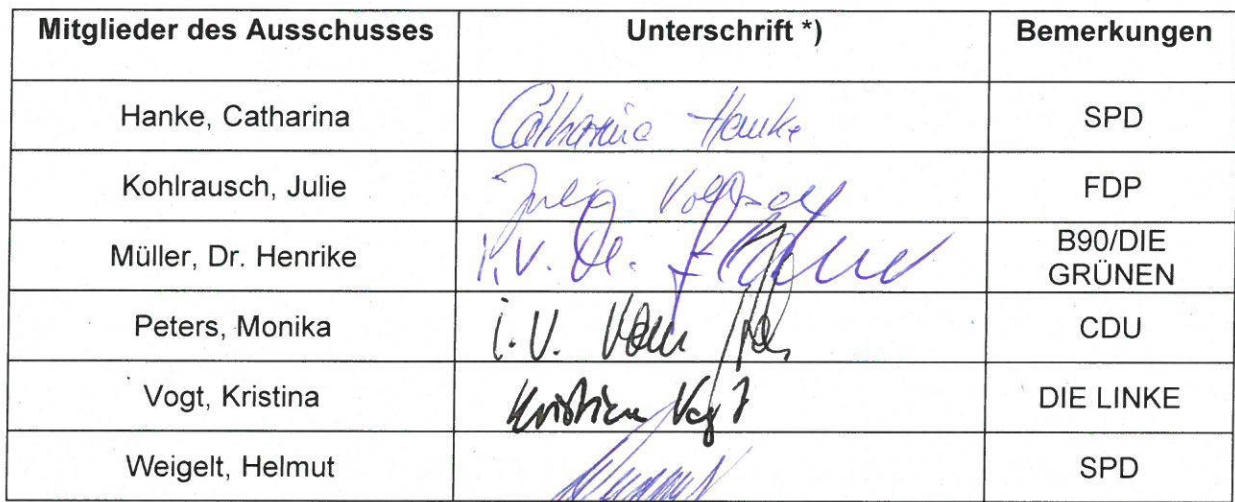 Mitglieder des Ausschusses Unterschrift *) Bemerkungen
Hanke, Catharina Catharina Hanke SPD
Kohlrausch, Julie Julie FDP
Müller, Dr. Henrike i.V. B90/DIE
GRÜNEN
Peters, Monika i.V. CDU
Vogt, Kristina Kristina Vogt DIE LINKE
Weigelt, Helmut SPD